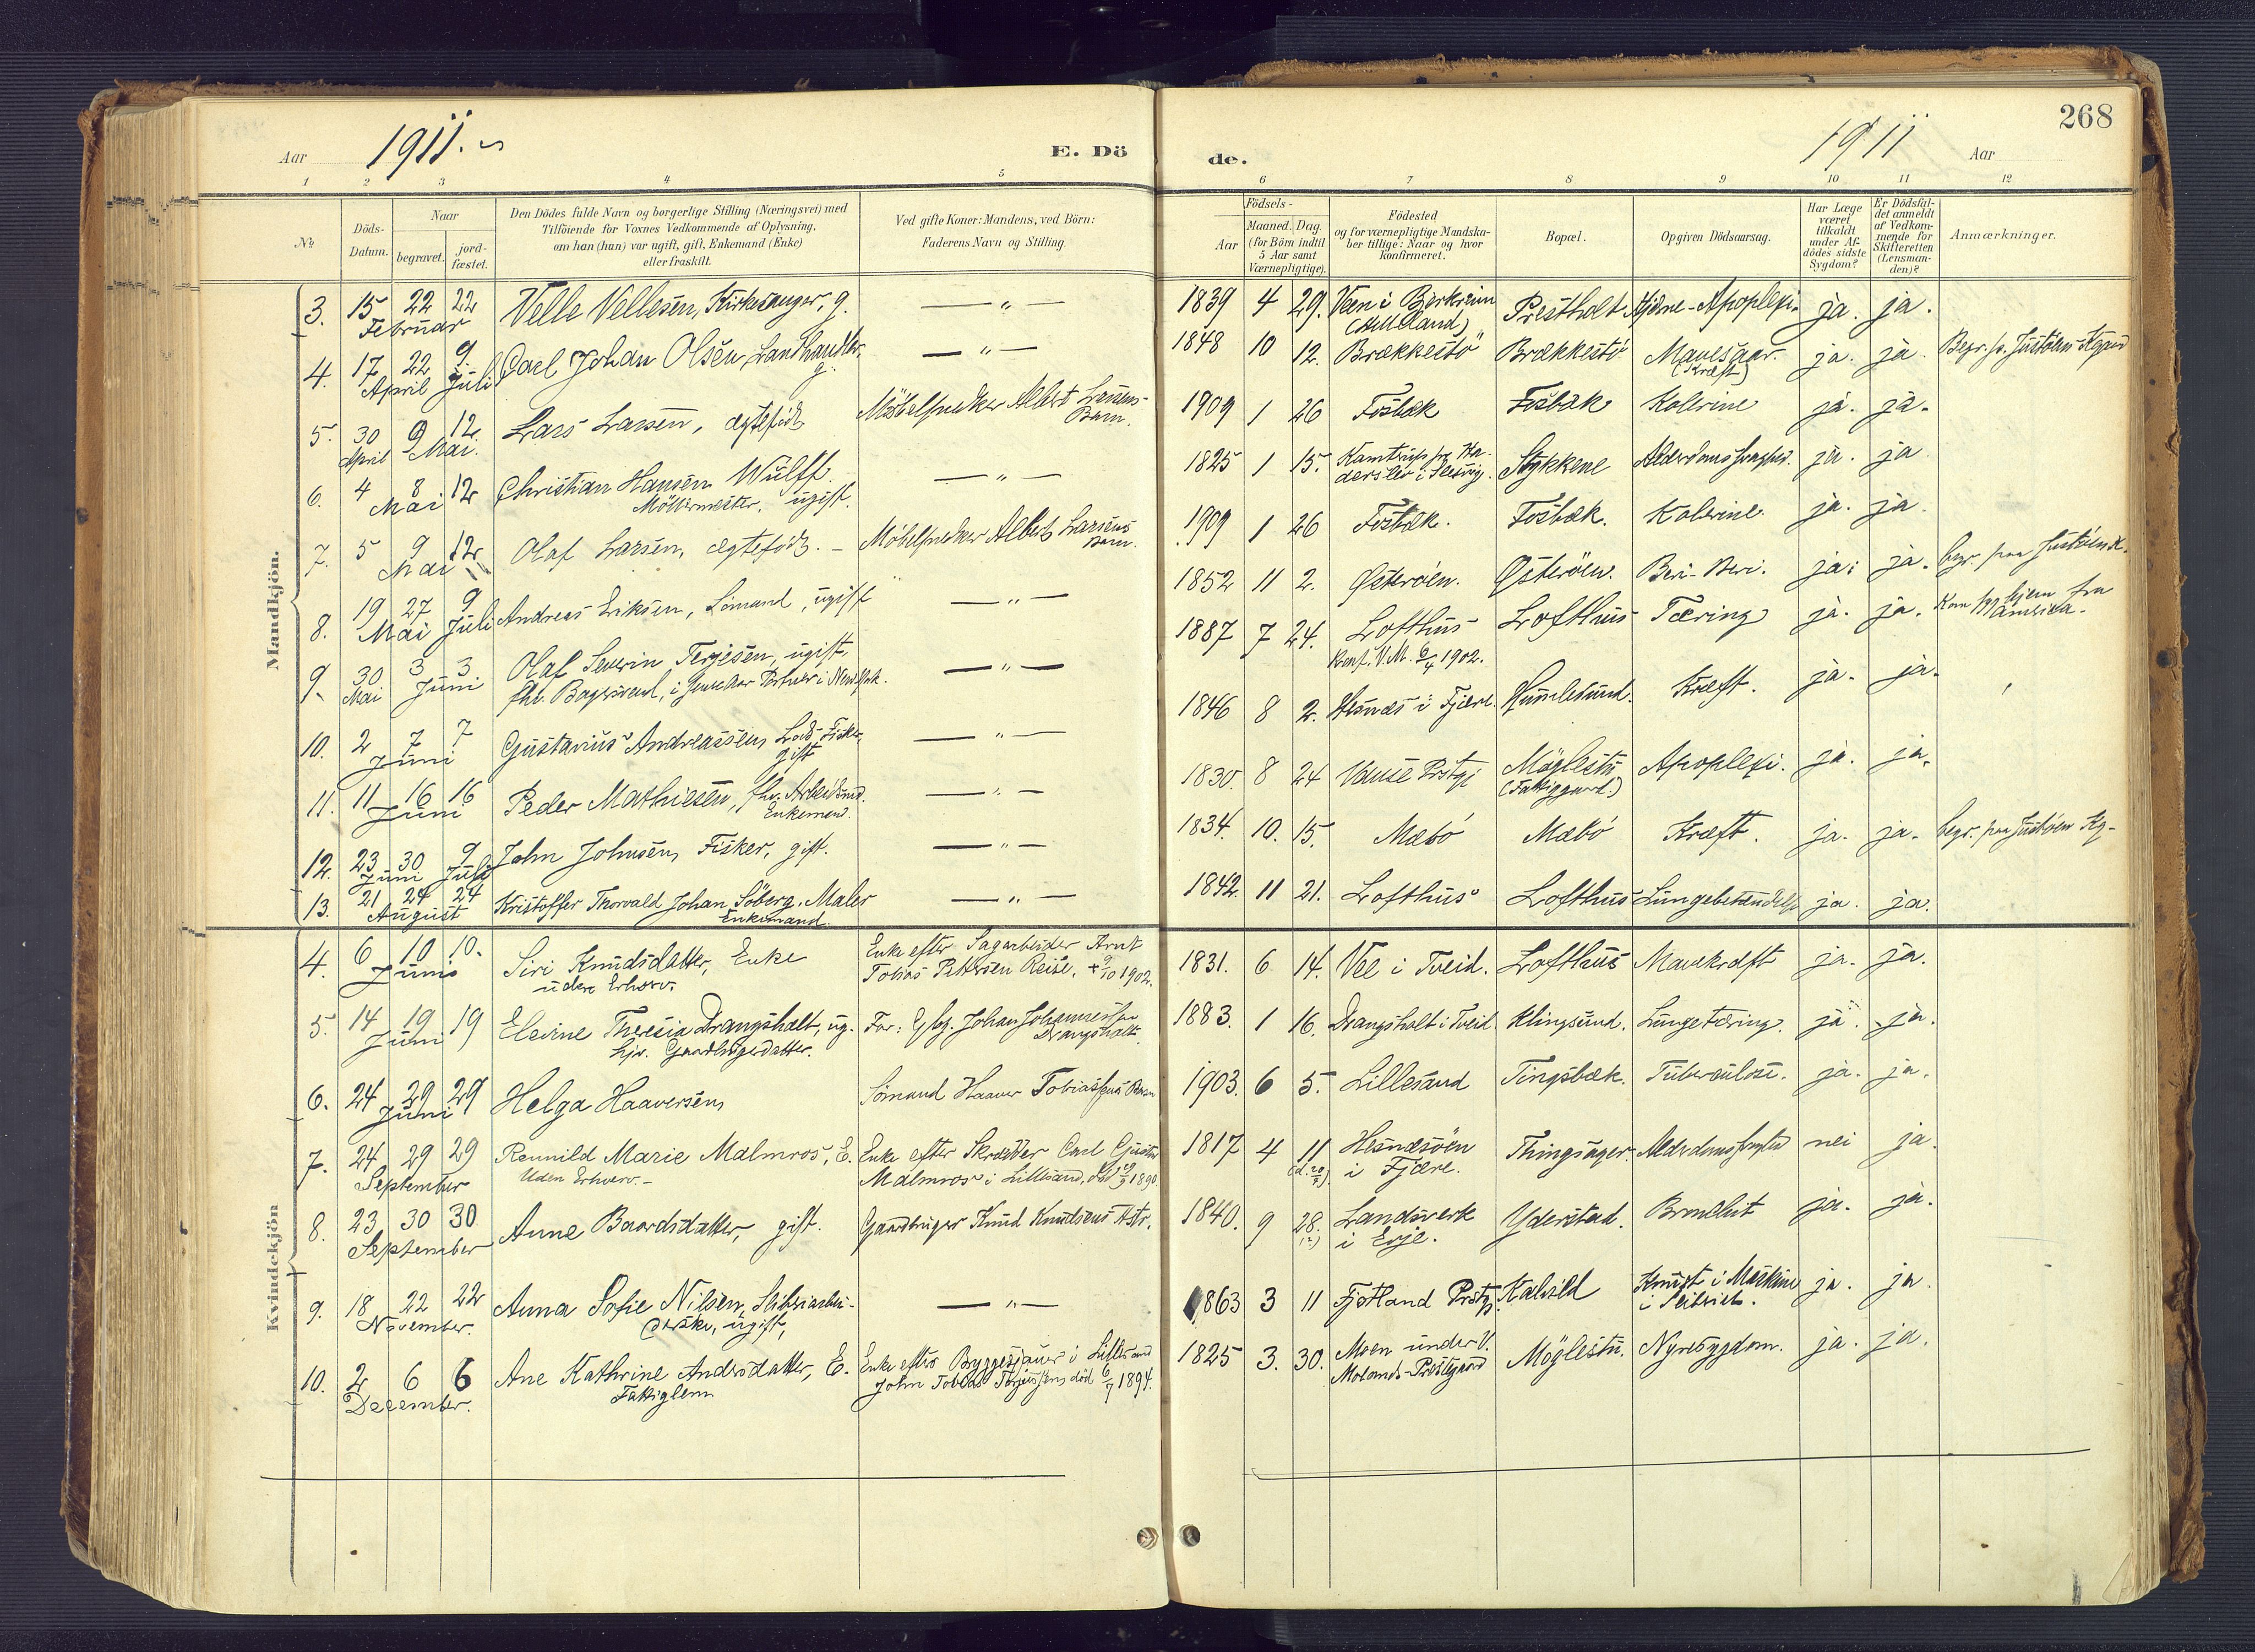 268
Aar 1911.
E. Dö
de.
1911 Aar
1 2 3 4 5 6 7 8 9 10 11 12
No
Döds-
Datum.
Naar
begravet.
jord-
fæstet.
Den Dödes fulde Navn og borgerlige Stilling (Næringsvei) med
Tilföiende for Voxnes Vedkommende af Oplysning,
om han (hun) var ugift, gift, Enkemand (Enke)
eller fraskilt.
Ved gifte Koner: Mandens, ved Börn:
Faderens Navn og Stilling.
Födsels-
Aar
Maaned. Dag.
(for Börn indtil
5 Aar samt
Værnepligtige).
Födested
og for værnepligtige Mandska-
ber tillige: Naar og hvor
konfirmeret.
Bopæl.
Opgiven Dödsaarsag.
Har Læge
været
tilkaldt
under Af-
dödes sidste
Sygdom?
Er Dödsfal-
det anmeldt
af Vedkom-
mende for
Skifteretten
(Lensman-
den)?
Anmærkninger.
Mandkjön.
3. 15 22 22 Velle Vellesen, Kirkesanger, g. — " — 1839 4 29. Veen i Bjerkreim Prestholt Hjerne-Apoplexi. ja. ja.
Februar
4. 17 22 9 Carl Johan Olsen, Landhandler, — " — 1848 10 12. Brækkestö Brækkestö Mavesaar. ja. ja. Begr. p. Justöens Kgaard
April Juli g. (Kræft)
5. 30 9 12. Lars Larsen, ægtefödt Albert Larsens 1909 1 26 Fosbæk Fosbæk Kolerine ja. ja.
April Mai. Barn.
6. 4 8 12 Christian Hansen Wulff. — " — 1825 1 15. Stykkene ja. ja
Mai Möllermester, ugift.
7. 5 9 12 Olaf Larsen, ægtefödt. Albert Larsens 1909 1 26 Fosbæk. Fosbæk. Kolerine ja. ja.
Mai Barn.
8. 19 27 9 Andreas Eriksen, Sömand, ugift — " — 1852 11 2. Østeröen. Østeröen. Beri-Beri. ja. ja. begr. paa Justöens K.
Mai Juli
9. 30 3 3 Olaf Severin Terjesen, ugift, — " — 1887 7 24. Lofthus Lofthus Tæring ja. ja. hjem fra
Mai Juni Konf. V.M. 6/4 1902. Amerika.
10. 2 7 7 Gustavius Andreassen, Lods, Fisker, — " — 1846 8 2. Hesnæs i Fjære. Humlesund. Kræft. ja. ja.
Juni gift
11. 11 16 16 Peder Mathiesen, fhv. Arbeidsmd. — " — 1830. 8 24 Vanse Prstgj Möglestu Apoplexi. ja. ja.
Juni Enkemand. (Fattiggaard.)
12. 23 30 9 John Johnsen, Fisker, gift. — " — 1834. 10. 15. Mæbö Mæbö Kræft. ja. ja. begr. paa Justöen Kg.
Juni Juli
13. 21 24 24 Kristoffer Thorvald Johan Söberg, Maler — " — 1842. 11 21. Lofthus Lofthus Lungebetændelse ja. ja.
August Enkemand.
Kvindekjön
4. 6 10 10. Siri Knudsdatter, Enke Enke efter Sagarbeider Arnt 1831. 6 14. Vee i Tveid. Lofthus Mavekræft ja. ja.
Juni uden Erhverv. Tobias Pettersen Reise, + 9/10 1902.
5. 14 19 19 Elevine Theresia Drangsholt, ug. Far: Johan Johannessen 1883. 1 16. Drangsholt i Tveid Klingsund. Lungetæring. ja. ja.
Juni hjv. Gaardbrugerdatter. Drangsholt.
6. 24 29 29 Helga Haaversen, Sömand Haaver Tobiassens Barn 1903. 6 5. Lillesand Tingsbæk. Tuberculose. ja. ja.
Juni
7. 24 29 29 Reunild Marie Malmros, E. Enke efter Skrædder Carl Gustav 1817 4 11 Hesnæsöen Thingsager. Alderdomssvaghed nei ja.
September Uden Erhverv.- Malmros i Lillesand, 1890 i Fjære.
8. 23 30 30 Anne Baardsdatter, gift. Gaardbruger Knud Knudsens Hstr. 1840. 9 28. Landsverk Yderstad. Bronchit ja. ja.
September i Evje.
9. 18 22 22 Anna Sofie Nilsen, Sliberiarbei- — " — 1863 3 11 Fjotland Prstgj. Kalvild Knust i Maskine ja. ja.
November. derske, ugift, i Sliberiet.
10. 2 6 6 Ane Kathrine Andersdatter, E. Enke efter Bryggesjauer i Lillesand 1825 3. 30. Moen under V. Möglestu. Nyresygdom. ja. ja.
December. Fattiglem John Tobias Terjussen, död 6/7 1894. Molands-Prestegaard